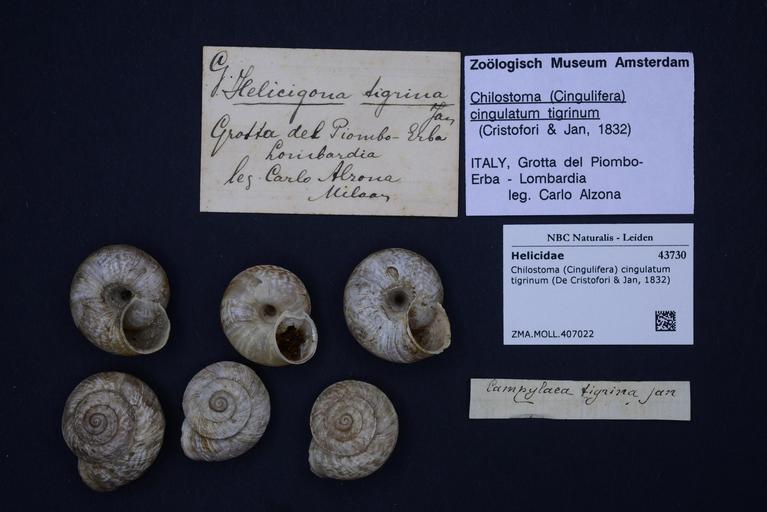 G. Helicigona tigrina
Jan
Grotta del Piombo - Erba
Lombardia
leg. Carlo Alzona
Milaan
Zoölogisch Museum Amsterdam
Chilostoma (Cingulifera)
cingulatum tigrinum
(Cristofori & Jan, 1832)
ITALY, Grotta del Piombo-
Erba - Lombardia
leg. Carlo Alzona
NBC Naturalis - Leiden
Helicidae 43730
Chilostoma (Cingulifera) cingulatum
tigrinum (De Cristofori & Jan, 1832)
ZMA.MOLL.407022
Campylaea tigrina, Jan